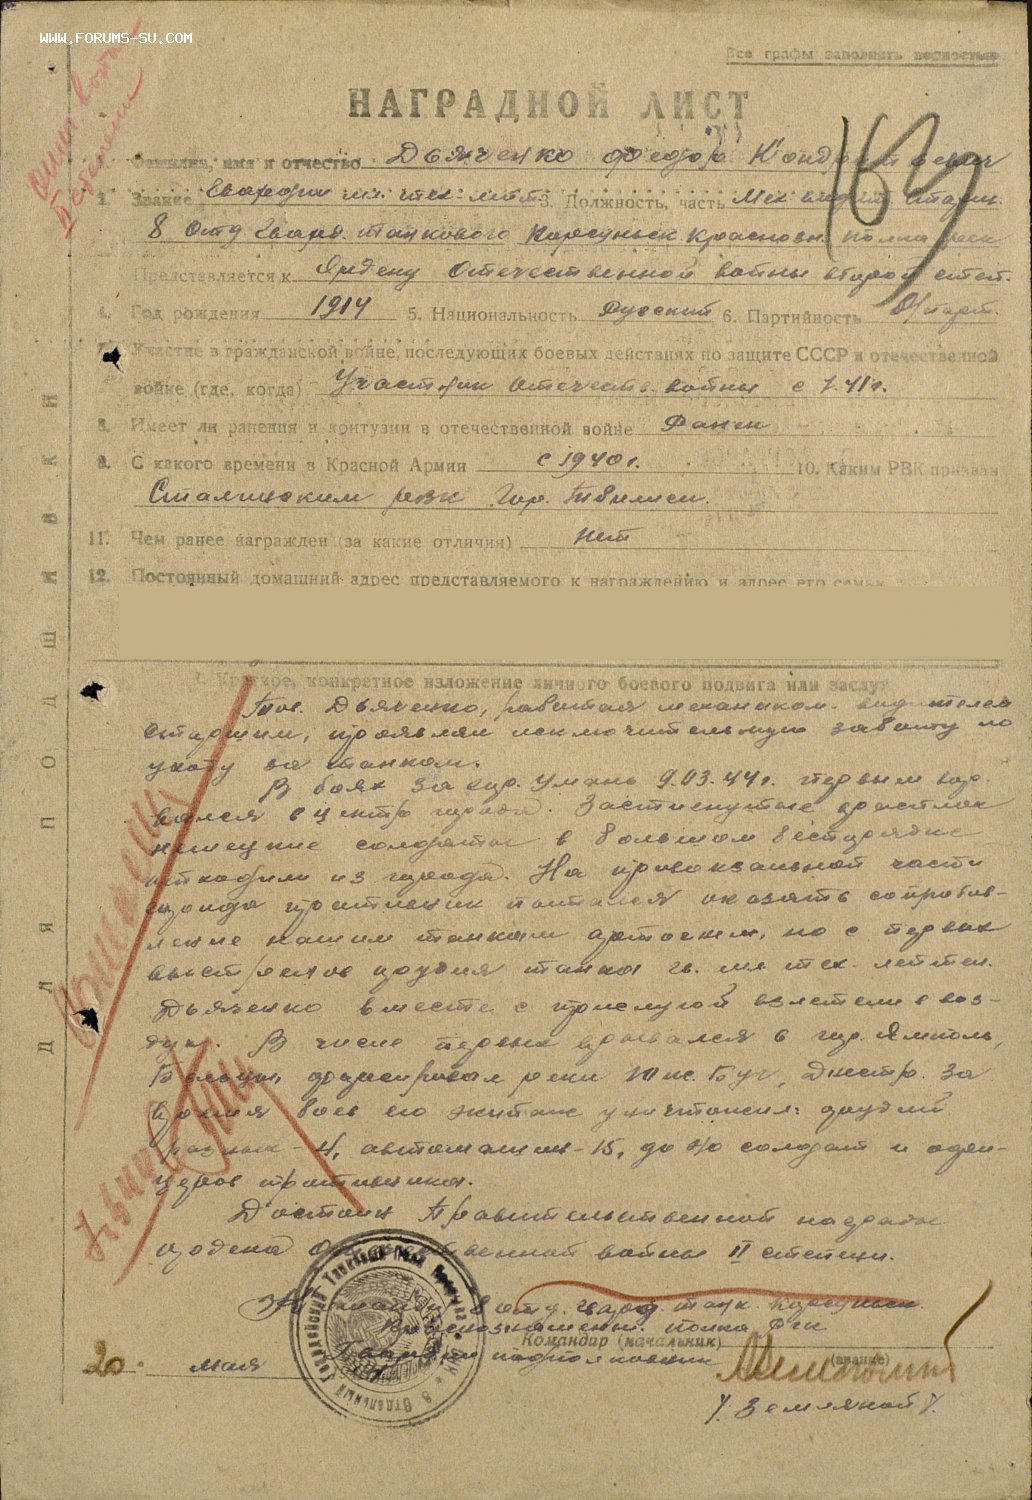 WWW.FORUMS-SU.COM
Все графы заполнять полностью
НАГРАДНОЙ ЛИСТ
Фамилия, имя и отчество Дьяченко Федор Кондратьевич
2. Звание Гвардии мл. тех. лейт. 3. Должность, часть Мех. водит. старш.
8 Отд Гвард. танкового Корсуньск. Краснозн. полка
Представляется к Ордену Отечественной войны второй степ.
4. Год рождения 1914 5. Национальность Русский 6. Партийность б/парт.
7. Участие в гражданской войне, последующих боевых действиях по защите СССР и отечественной
войне (где, когда) Участник отечеств. войны с 7.41г.
8. Имеет ли ранения и контузии в отечественной войне Ранен
9. С какого времени в Красной Армии с 1940 г. 10. Каким РВК призван
Сталинским рвк гор. Тбилиси.
11. Чем ранее награжден (за какие отличия) нет
12. Постоянный домашний адрес представляемого к награждению и адрес его семьи
ДЛЯ ПОДШИВКИ
I. Краткое, конкретное изложение личного боевого подвига или заслуг
Тов. Дьяченко, работая механиком-водителем
старшим, проявлял исключительную заботу по
уходу за танком.
В боях за гор. Умань 9.03.44 г. первым вор-
вался в центр города. Застигнутые врасплох
немецкие солдаты в большом беспорядке
отходили из города. На привокзальной части
города противник пытался оказать сопротив-
ление нашим танкам артогнем, но с первых
выстрелов орудия танка гв. мл тех. лейтен.
Дьяченко вместе с прислугой взлетели в воз-
дух. В числе первых врывался в гор. Ямполь,
Бельцы, форсировал реки Юж. Буг, Днестр. За
время боев его экипаж уничтожил: орудий
разных - 4, автомашин - 15, до 40 солдат и офи-
церов противника.
Достоин Правительственной награды
ордена Отечественной войны II степени.
Командир 8 отд. гвард. танк. Корсуньск.
Краснознаменн. полка
Командир (начальник)
Гвардии подполковник
(звание)
20 мая
/Земляной/.